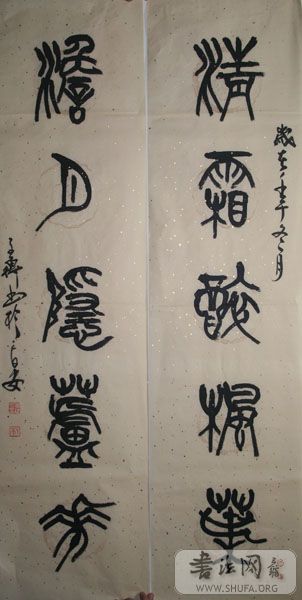 清霜醉楓葉
歲在壬午冬月
澹月隱蘆花
书法网
WWW.SHUFA.ORG